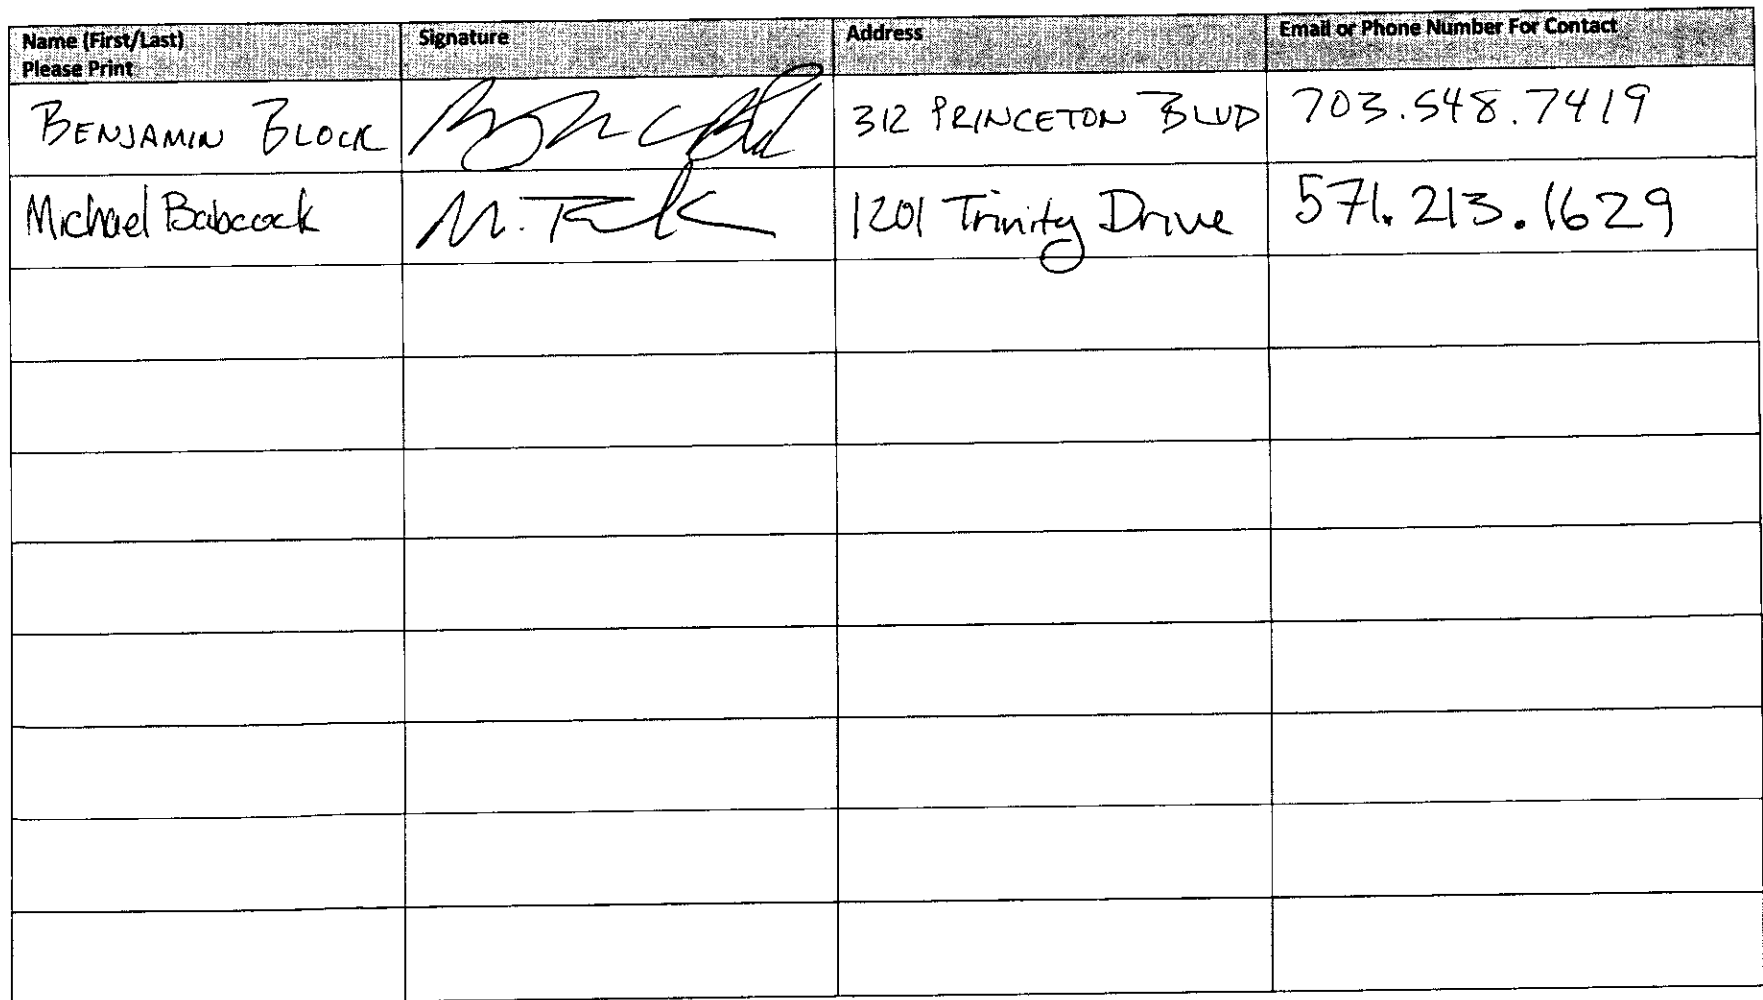 Name (First/Last) Signature Address Email or Phone Number For Contact
Please Print
BENJAMIN BLOCK 312 PRINCETON BLVD 703.548.7419
Michael Babcock 1201 Trinity Drive 571.213.1629